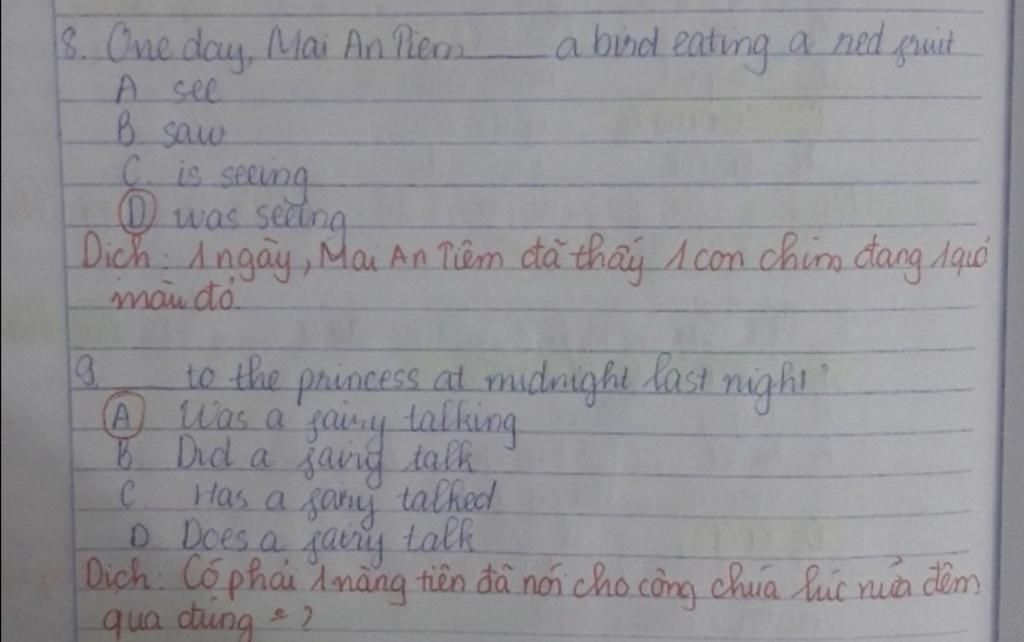 8. One day, Mai An Tiem ____ a bird eating a red fruit
A see
B. saw
C. is seeing
D was seeing
Dịch: 1 ngày, Mai An Tiêm đã thấy 1 con chim đang 1 quả
màu đỏ.
9. ____ to the princess at midnight last night?
A Was a fairy talking
B Did a fairy talk
C. Has a fairy talked
D Does a fairy talk
Dịch: Có phải 1 nàng tiên đã nói cho công chúa lúc nửa đêm
qua đúng = ?